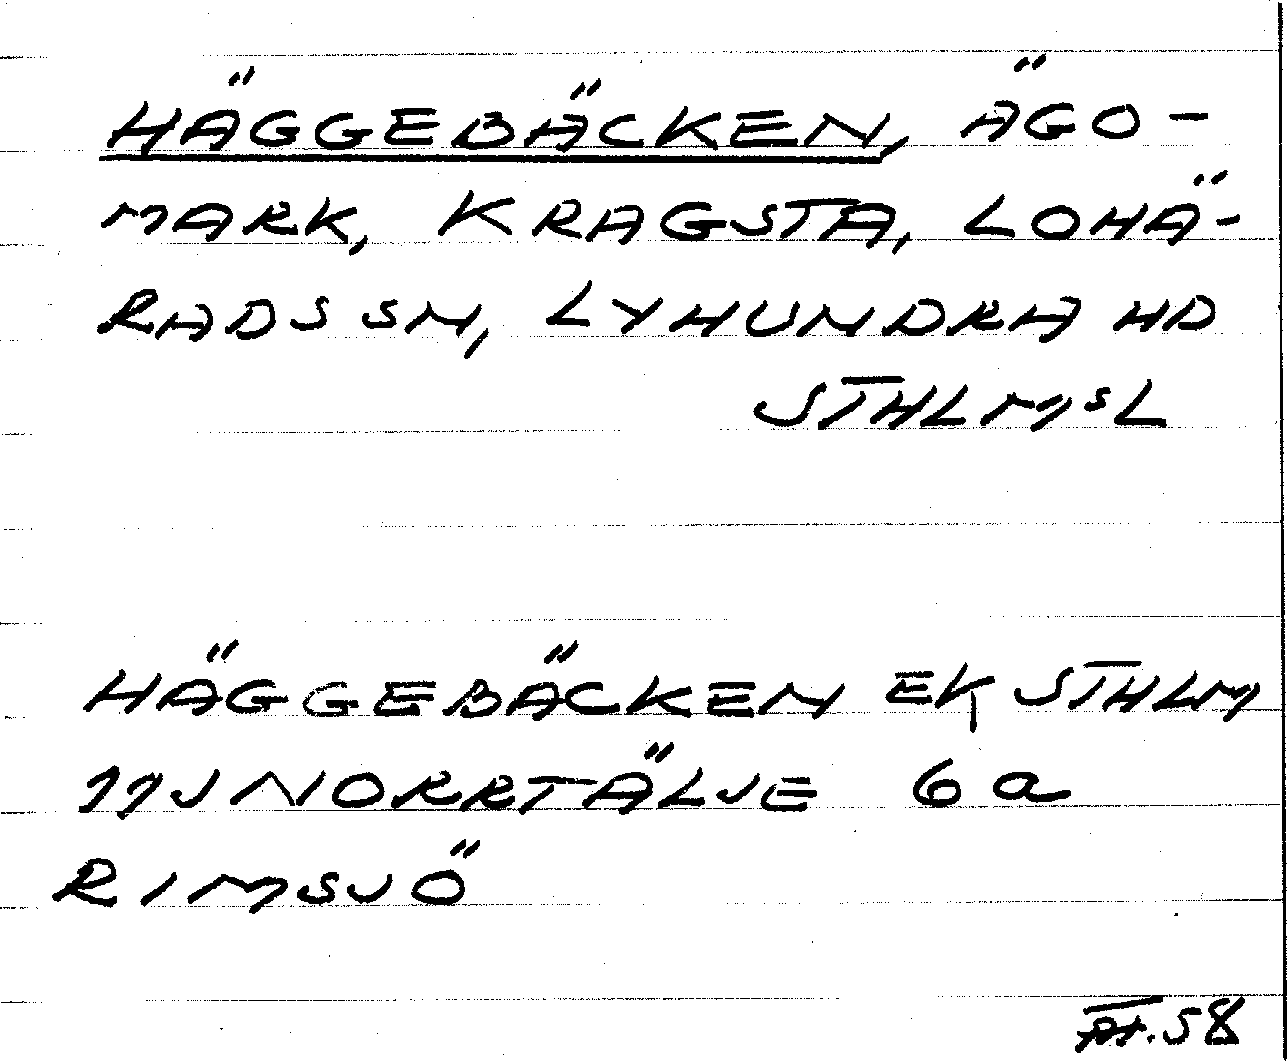 HÄGGEBÄCKEN, ÄGO-
MARK, KRAGSTA, LOHÄ-
RADS SN, LYHUNDRA HD
STHLMSL
HÄGGEBÄCKEN EK STHLM
11J NORRTÄLJE 6a
RIMSJÖ
58